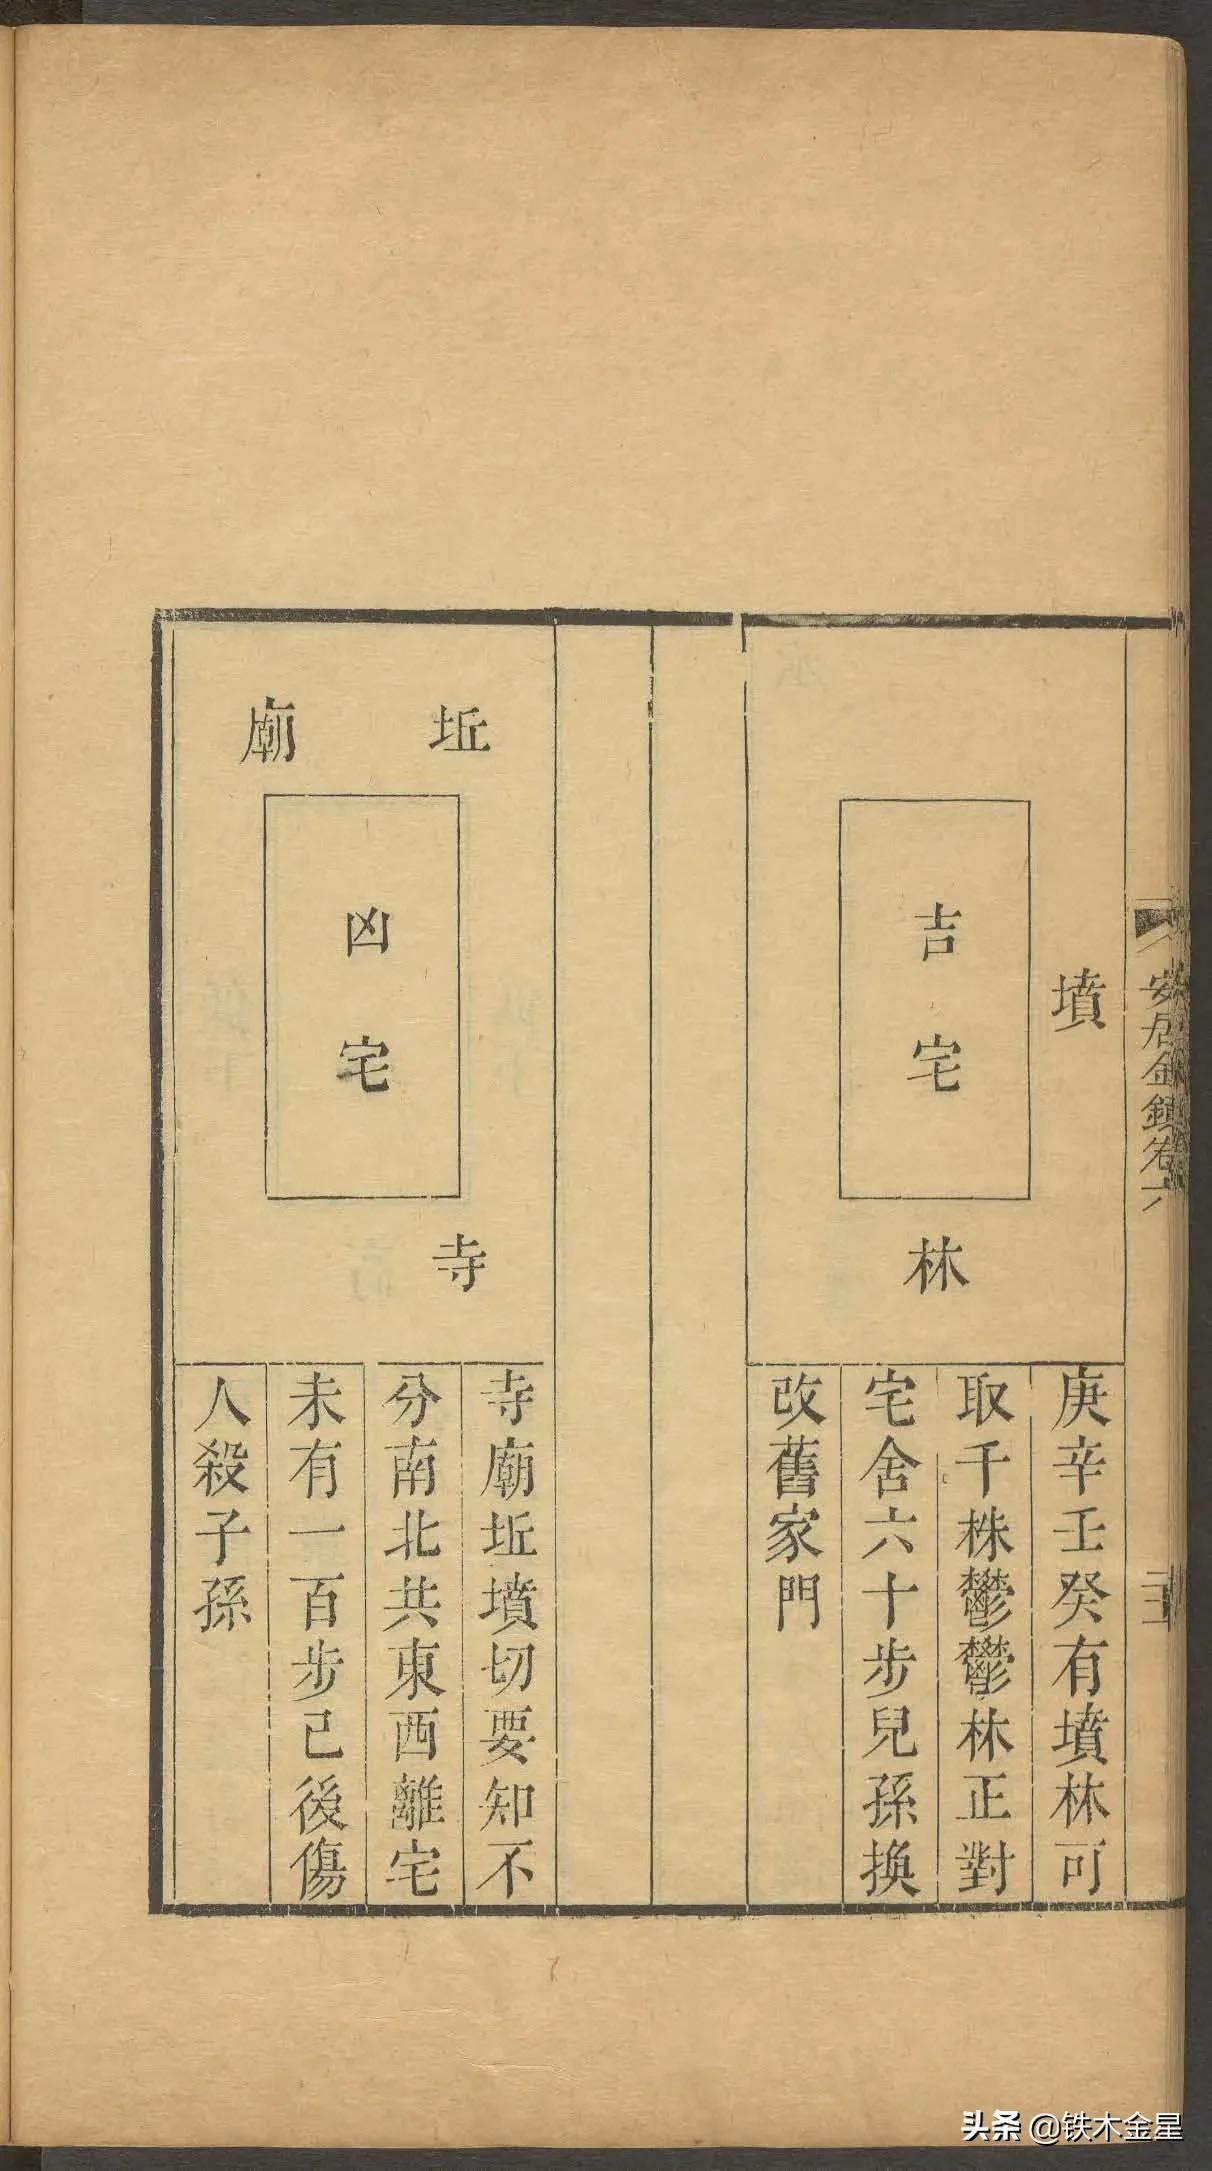 安居金鏡卷六
墳
吉宅
林
庚辛壬癸有墳林可
取千株鬱鬱林正對
宅舍六十步兒孫換
改舊家門
坵
廟
凶宅
寺
寺廟坵墳切要知不
分南北共東西離宅
未有一百步己後傷
人殺子孫
头条 @铁木金星